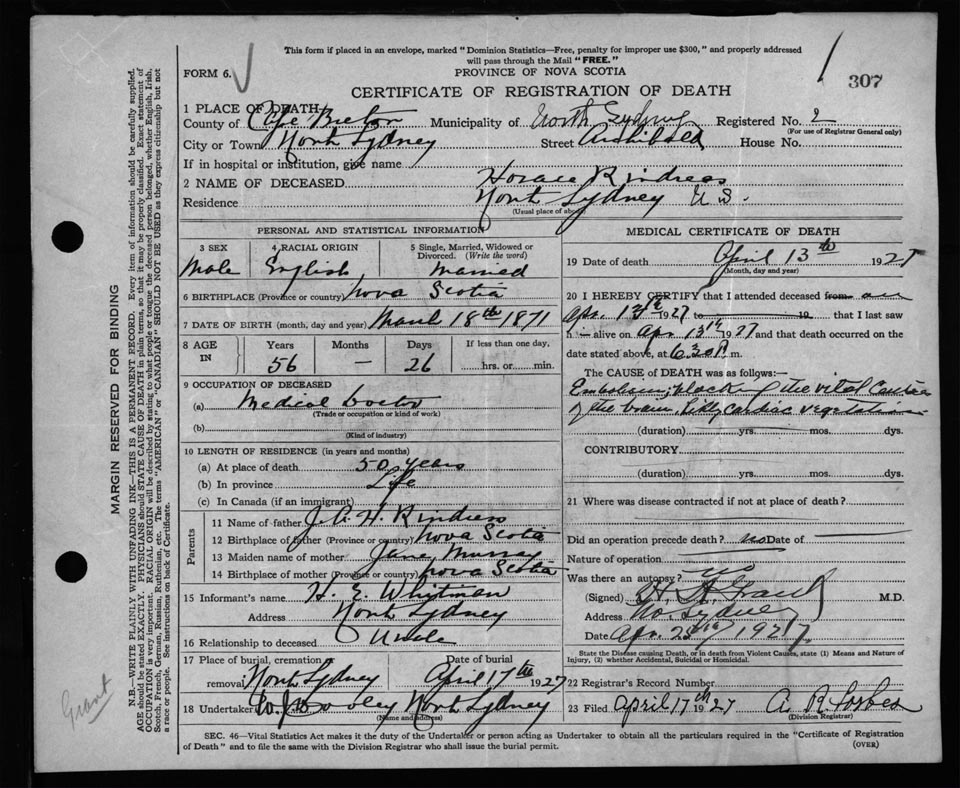 This form if placed in an envelope, marked "Dominion Statistics—Free, penalty for improper use $300," and properly addressed
will pass through the Mail "FREE."
FORM 6.
PROVINCE OF NOVA SCOTIA
307
CERTIFICATE OF REGISTRATION OF DEATH
1 PLACE OF DEATH
County of Cape Breton Municipality of North Sydney Registered No. 2
(For use of Registrar General only)
City or Town North Sydney Street Archibald House No.
If in hospital or institution, give name
2 NAME OF DECEASED Horace Rindress
Residence North Sydney
(Usual place of abode)
PERSONAL AND STATISTICAL INFORMATION
3 SEX 4 RACIAL ORIGIN 5 Single, Married, Widowed or Divorced. (Write the word)
Male English Married
6 BIRTHPLACE (Province or country) Nova Scotia
7 DATE OF BIRTH (month, day and year) March 18th 1871
8 AGE IN Years Months Days If less than one day,
56 — 26 hrs. or min.
9 OCCUPATION OF DECEASED
(a) Medical Doctor
(Trade or occupation or kind of work)
(b)
(Kind of industry)
10 LENGTH OF RESIDENCE (in years and months)
(a) At place of death 50 years
(b) In province Life
(c) In Canada (if an immigrant)
Parents
11 Name of father J. A. H. Rindress
12 Birthplace of father (Province or country) Nova Scotia
13 Maiden name of mother Jane Murray
14 Birthplace of mother (Province or country) Nova Scotia
15 Informant's name H. E. Whitman
Address North Sydney
16 Relationship to deceased Uncle
17 Place of burial, cremation Date of burial
removal North Sydney April 17th 1927
18 Undertaker North Sydney
(Name and address)
MEDICAL CERTIFICATE OF DEATH
19 Date of death April 13th 1927
(Month, day and year)
20 I HEREBY CERTIFY that I attended deceased from on
Apr. 13th 1927 to 19 that I last saw
h alive on Apr. 13th 1927 and that death occurred on the
date stated above, at 6.30 P. m.
The CAUSE of DEATH was as follows:—
Embolism; block of the vital Centres
of the brain, likely cardiac vegetation
(duration) yrs. mos. dys.
CONTRIBUTORY
(duration) yrs. mos. dys.
21 Where was disease contracted if not at place of death?
Did an operation precede death? no Date of
Nature of operation
Was there an autopsy? no
(Signed) M.D.
Address No. Sydney
Date Apr. 1927.
State the Disease causing Death, or in death from Violent Causes, state (1) Means and Nature of
Injury, (2) whether Accidental, Suicidal or Homicidal.
22 Registrar's Record Number
23 Filed April 17th 1927 A. R. Forbes
(Division Registrar)
SEC. 46—Vital Statistics Act makes it the duty of the Undertaker or person acting as Undertaker to obtain all the particulars required in the "Certificate of Registration
of Death" and to file the same with the Division Registrar who shall issue the burial permit.
(OVER)
MARGIN RESERVED FOR BINDING
N.B.—WRITE PLAINLY, WITH UNFADING INK—THIS IS A PERMANENT RECORD. Every item of information should be carefully supplied.
AGE should be stated EXACTLY. PHYSICIANS should STATE CAUSE OF DEATH in plain terms, so that it may be properly classified. Exact statement of
OCCUPATION is very important. RACIAL ORIGIN will be described by stating to what people or tongue the deceased person belonged, whether English, Irish,
Scotch, French, German, Russian, Ruthenian, etc. The terms "AMERICAN" or "CANADIAN" SHOULD NOT BE USED as they express citizenship but not
a race or people. See instructions on back of Certificate.
Grant